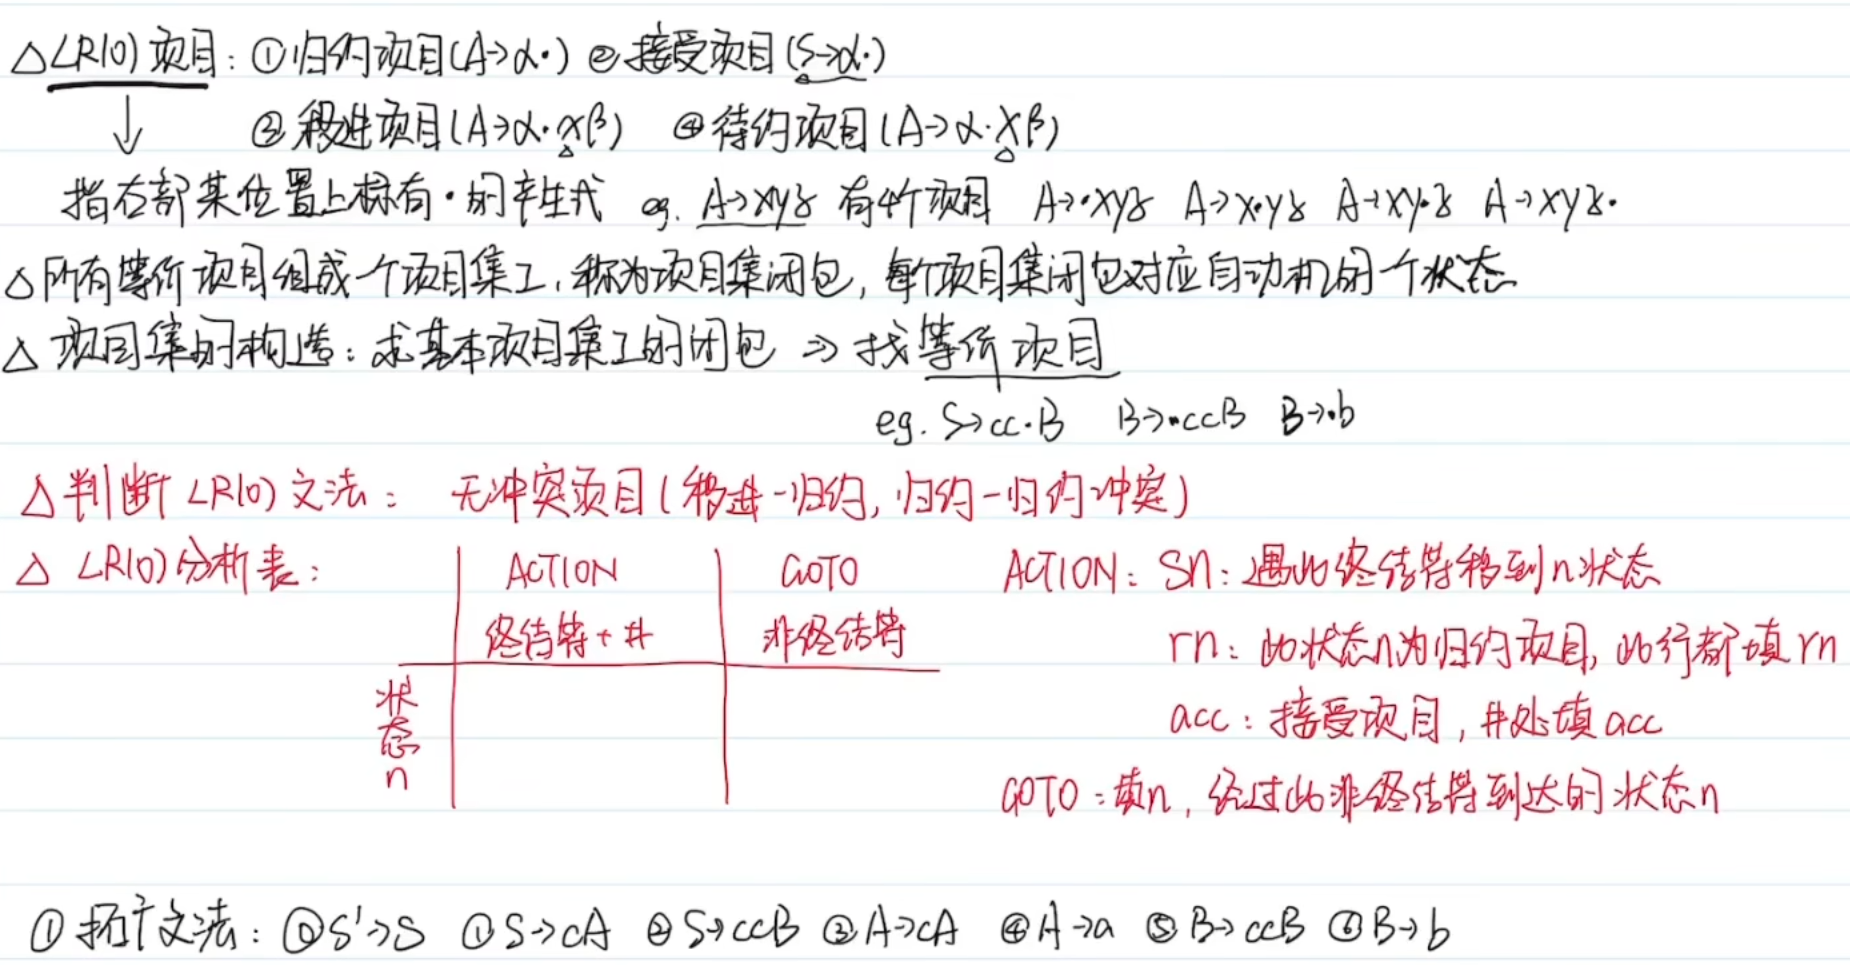 △LR(0)项目：①归约项目(A→α·) ②接受项目(S→α·)
③移进项目(A→α·xβ) ④待约项目(A→α·Xβ)
指右部某位置上标有·的产生式 eg. A→xyz 有4个项目 A→·xyz A→x·yz A→xy·z A→xyz·
△所有等价项目组成一个项目集I，称为项目集闭包，每个项目集闭包对应自动机的一个状态
△项目集的构造：求基本项目集I的闭包 ⇒ 找等价项目
eg. S→cc·B B→·ccB B→·b
△判断LR(0)文法： 无冲突项目(移进-归约，归约-归约冲突)
△ LR(0)分析表： ACTION GOTO ACTION：Sn：遇此终结符移到n状态
终结符+# 非终结符 rn：此状态n为归约项目，此行都填rn
状态n acc：接受项目，#处填acc
GOTO：填n，经过此非终结符到达的状态n
①拓广文法：⓪S'→S ①S→cA ②S→ccB ③A→cA ④A→a ⑤B→ccB ⑥B→b